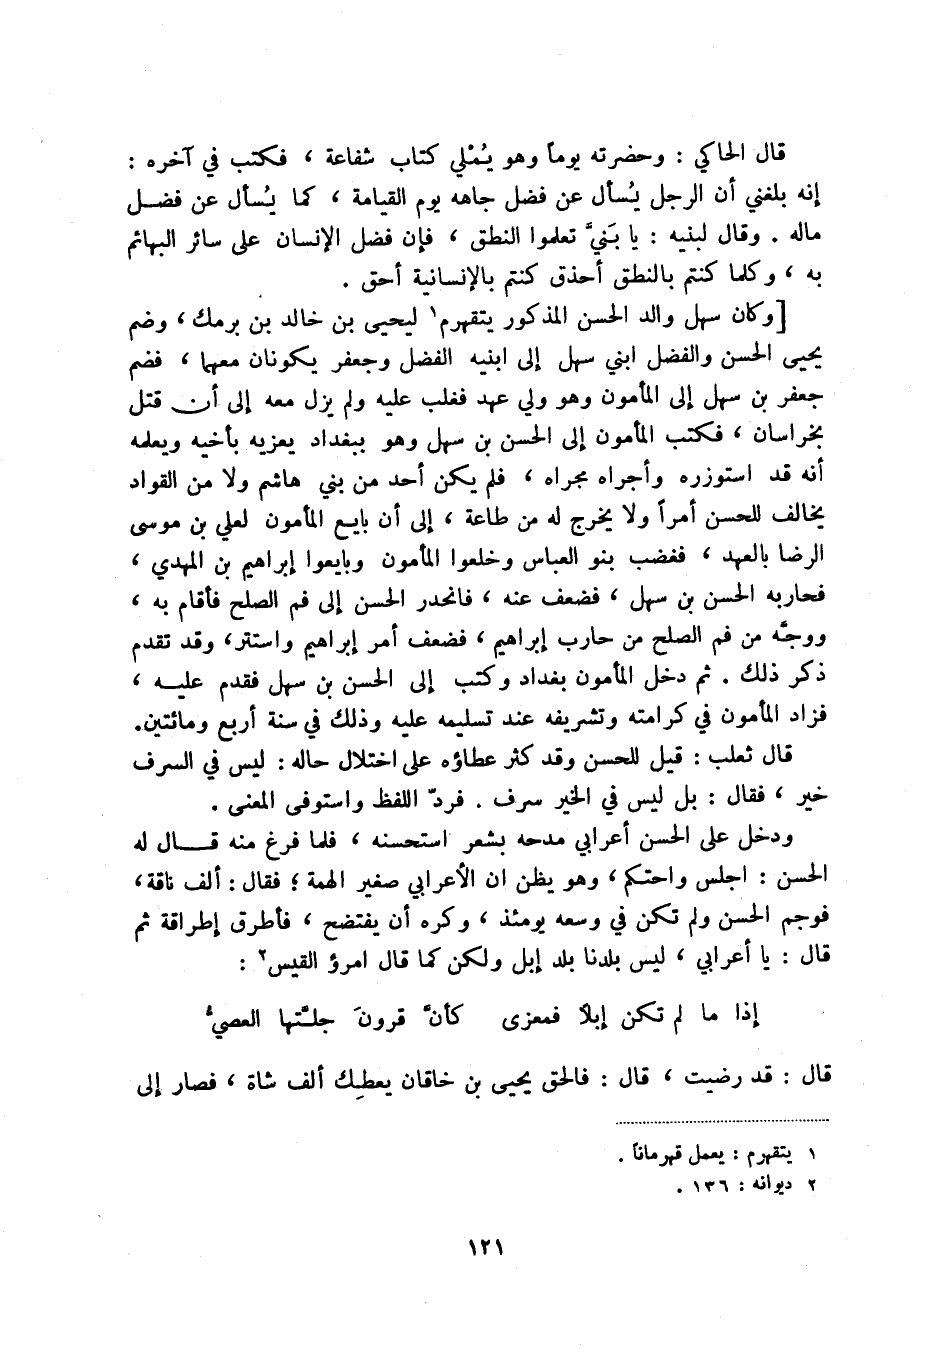 قال الحاكي : وحضرته يوماً وهو يُمْلي كتاب شفاعة ، فكتب في آخره :
إنه بلغني أن الرجل يُسأل عن فضل جاهه يوم القيامة ، كما يُسأل عن فضل
ماله . وقال لبنيه : يا بَنيَّ تعلموا النطق ، فإن فضل الإنسان على سائر البهائم
به ، وكلما كنتم بالنطق أحذق كنتم بالإنسانية أحق .
[وكان سهل والد الحسن المذكور يتقهرم١ ليحيى بن خالد بن برمك ، وضم
يحيى الحسن والفضل ابني سهل إلى ابنيه الفضل وجعفر يكونان معهما ، فضم
جعفر بن سهل إلى المأمون وهو ولي عهد فغلب عليه ولم يزل معه إلى أن قتل
بخراسان ، فكتب المأمون إلى الحسن بن سهل وهو ببغداد يعزيه بأخيه ويعلمه
أنه قد استوزره وأجراه مجراه ، فلم يكن أحد من بني هاشم ولا من القواد
يخالف للحسن أمراً ولا يخرج له من طاعة ، إلى أن بايع المأمون لعلي بن موسى
الرضا بالعهد ، فغضب بنو العباس وخلعوا المأمون وبايعوا إبراهيم بن المهدي ،
فحاربه الحسن بن سهل ، فضعف عنه ، فانحدر الحسن إلى فم الصلح فأقام به ،
ووجَّه من فم الصلح من حارب إبراهيم ، فضعف أمر إبراهيم واستتر ، وقد تقدم
ذكر ذلك . ثم دخل المأمون بغداد وكتب إلى الحسن بن سهل فقدم عليه ،
فزاد المأمون في كرامته وتشريفه عند تسليمه عليه وذلك في سنة أربع ومائتين.
قال ثعلب : قيل للحسن وقد كثر عطاؤه على اختلال حاله : ليس في السرف
خير ، فقال : بل ليس في الخير سرف . فردّ اللفظ واستوفى المعنى .
ودخل على الحسن أعرابي مدحه بشعر استحسنه ، فلما فرغ منه قال له
الحسن : اجلس واحتكم ، وهو يظن ان الأعرابي صغير الهمة ؛ فقال : ألف ناقة ،
فوجم الحسن ولم تكن في وسعه يومئذ ، وكره أن يفتضح ، فأطرق إطراقة ثم
قال : يا أعرابي ، ليس بلدنا بلد إبل ولكن كما قال امرؤ القيس٢ :
إذا ما لم تكن إبلاً فمعزى كأنَّ قرونَ جلَّتها العصيُّ
قال : قد رضيت ، قال : فالحق يحيى بن خاقان يعطِك ألف شاة ، فصار إلى
١ يتقهرم : يعمل قهرماناً .
٢ ديوانه : ١٣٦ .
١٢١